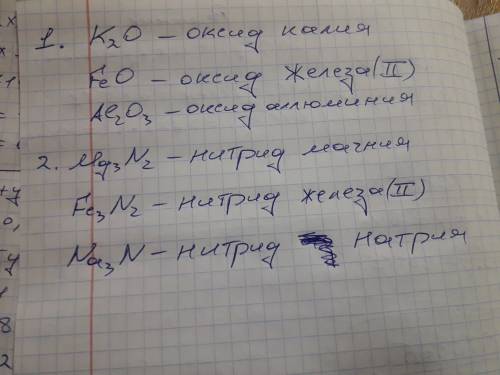 1. K₂O – оксид калия
FeO – оксид железа (II)
Al₂O₃ – оксид аллюминия
2. Mg₃N₂ – нитрид магния
Fe₃N₂ – нитрид железа (II)
Na₃N – нитрид натрия